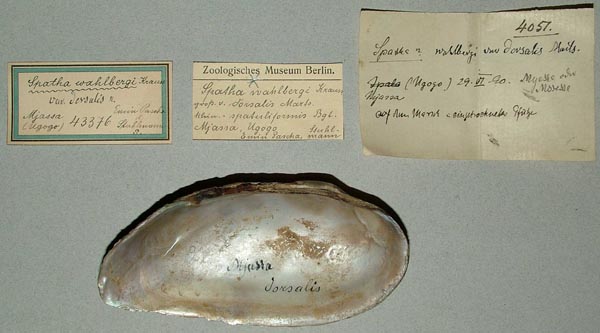 Spatha wahlbergi Krauss
var. dorsalis n.
Mjassa
(Ugogo) 43376
Emin Pascha
Stuhlmann
Zoologisches Museum Berlin.
Spatha wahlbergi Krauss
groß v. dorsalis Marts.
klein - spatuliformis Bgt.
Mjassa, Ugogo
Stuhlmann
Emin Pascha,
4051.
wahlbergi var dorsalis
(Ugogo) 29. VI 90.
Mjassa
auf dem Marsch - eingetrocknete Pfütze
Mjassa
dorsalis